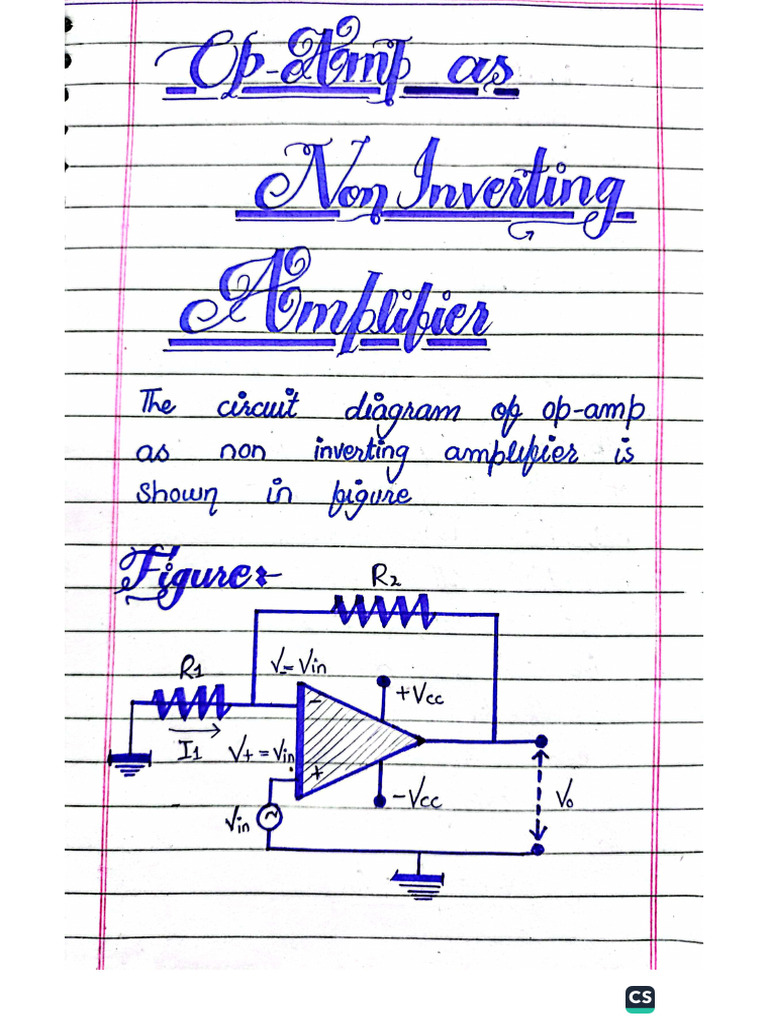 Op-Amp as
Non Inverting
Amplifier
The circuit diagram of op-amp
as non inverting amplifier is
shown in figure
Figure:-
R2
R1
V- = Vin
+Vcc
-
I1
V+ = Vin
+
-Vcc
Vo
Vin
~
CS